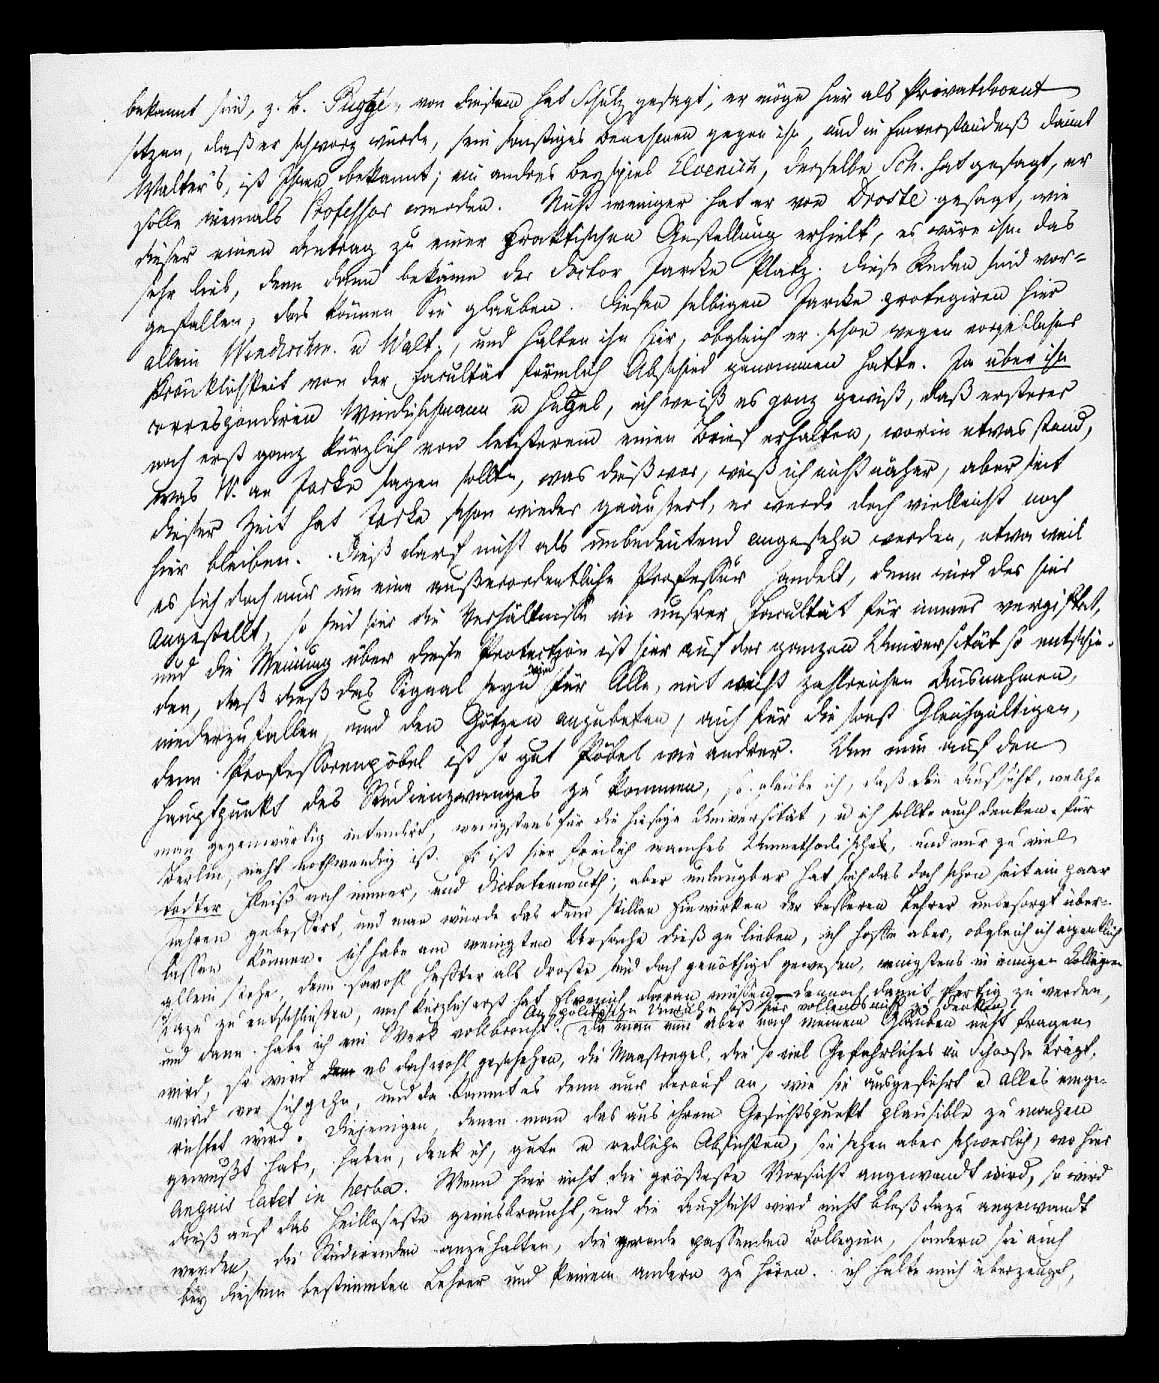 bekannt sind, z. B. Puggé, von diesem hat Schulz gesagt, er möge hier als Privatdocent
sitzen, daß er schwarz würde, sein sonstiges Benehmen gegen ihn, und in Einverständniß damit
Walter's, ist Ihnen bekannt; ein andres Beyspiel Elvenich, derselbe Sch. hat gesagt, er
solle niemals Professor werden. Nicht weniger hat er von Droste gesagt, wie
dieser einen Antrag zu einer praktischen Anstellung erhielt, es wäre ihm das
sehr lieb, denn dann bekäme der Doctor Jarcke Platz. Diese Reden sind vor-
gefallen, das können Sie glauben. Diesen selbigen Jarcke protegiren hier
allein Windischm. u Walt., und halten ihn hier, obgleich er schon wegen vorgeblicher
Kränklichkeit von der Facultät förmlich Abschied genommen hatte. Ja über ihn
correspondiren Windischmann u Hegel, ich weiß es ganz gewiß, daß ersterer
noch erst ganz kürzlich von letzterem einen Brief erhalten, worin etwas stand,
was W. an Jarke sagen sollte, was dieß war, weiß ich nicht näher, aber seit
dieser Zeit hat Jarke schon wieder geäußert, er werde doch vielleicht noch
hier bleiben. Dieß darf nicht als unbedeutend angesehn werden, etwa weil
es sich doch nur um eine außerordentliche Professur handelt, denn wird der hier
angestellt, so sind hier die Verhältnisse in unsrer Facultät für immer vergiftet,
und die Meinung über diese Protection ist hier auf der ganzen Universität so entschie-
den, daß dieß das Signal seyn wird für Alle, mit nicht zahlreichen Ausnahmen,
niederzufallen und den Götzen anzubeten, auch für die sonst Gleichgültigen,
denn Professorenpöbel ist so gut Pöbel wie andrer. Um nun auf den
Hauptpunkt des Studienzwanges zu kommen, so glaube ich, daß die Aufsicht, welche
man gegenwärtig intendirt, wenigstens für die hiesige Universität, u ich sollte auch denken für
Berlin, nicht nothwendig ist. Es ist hier freilich manches Unmethodisches, und nur zu viel
todter Fleiß noch immer, und Dictatenwuth; aber unleugbar hat sich das doch schon seit ein paar
Jahren gebessert, und man würde das dem stillen Einwirken der besseren Lehrer unbesorgt über-
lassen können. ich habe am wenigsten Ursache dieß zu lieben, ich hoffe aber, obgleich ich eigentlich
allein stehe, denn sowohl Haßter als Droste sind doch genöthigt gewesen, wenigstens in einigen Collegien
dazu zu entschließen, noch kürzlich erst hat Elvenich daran müssen — dennoch damit fertig zu werden,
und dann habe ich ein Werk vollbracht. An politische Unruhe ist hier vollends nicht zu denken. Da man nun aber nach meinem Glauben nicht fragen
wird, so wird es doch wohl geschehen, die Maasregel, die so viel Gefährliches im Schooße trägt,
wird vor sich gehn, und da kommt es denn nur darauf an, wie sie ausgeführt u alles einge-
richtet wird. Diejenigen, denen man das aus ihrem Gesichtspunkt plausible zu machen
gewußt hat, haben, denk ich, gute u redliche Absichten, sie sehen aber schwerlich, wo hier
anguis latet in herba. Wenn hier nicht die größeste Vorsicht angewandt wird, so wird
dieß auf das Heilloseste gemisbraucht, und die Aufsicht wird nicht bloß dazu angewandt
werden, die Studirenden anzuhalten, die gerade passenden Collegien, sondern sie auch
bey diesem bestimmten Lehrer und keinem andern zu hören. ich halte mich überzeugt,